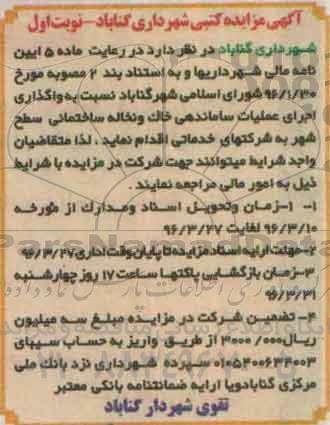 آگهی مزایده کتبی شهرداری گناباد - نوبت اول
شهرداری گناباد در نظر دارد در رعایت ماده ۵ ایین
نامه مالی شهرداریها و به استناد بند ۲ مصوبه مورخ
۹۶/۱/۳۰ شورای اسلامی شهر گناباد نسبت به واگذاری
اجرای عملیات ساماندهی خاک ونخاله ساختمانی سطح
شهر به شرکتهای خدماتی اقدام نماید ، لذا متقاضیان
واجد شرایط میتوانند جهت شرکت در مزایده با شرایط
ذیل به امور مالی مراجعه نمایند .
۱- ۱-زمان وتحویل اسناد ومدارک از مورخه
۹۶/۳/۱۰ لغایت ۹۶/۳/۲۷
۲-مهلت ارایه اسناد مزایده تا پایان وقت اداری ۹۶/۳/۲۷
۳-زمان بازگشایی پاکتها ساعت ۱۷ روز چهارشنبه
۹۶/۳/۳۱
۴- تضمین شرکت در مزایده مبلغ سه میلیون
ریال /۳۰۰۰/۰۰۰ از طریق واریز به حساب سیبای
۰۱۰۵۳۰۰۶۳۴۰۰۳ سپرده شهرداری نزد بانک ملی
مرکزی گنابادویا ارایه ضمانتنامه بانکی معتبر
تقوی شهردار گناباد